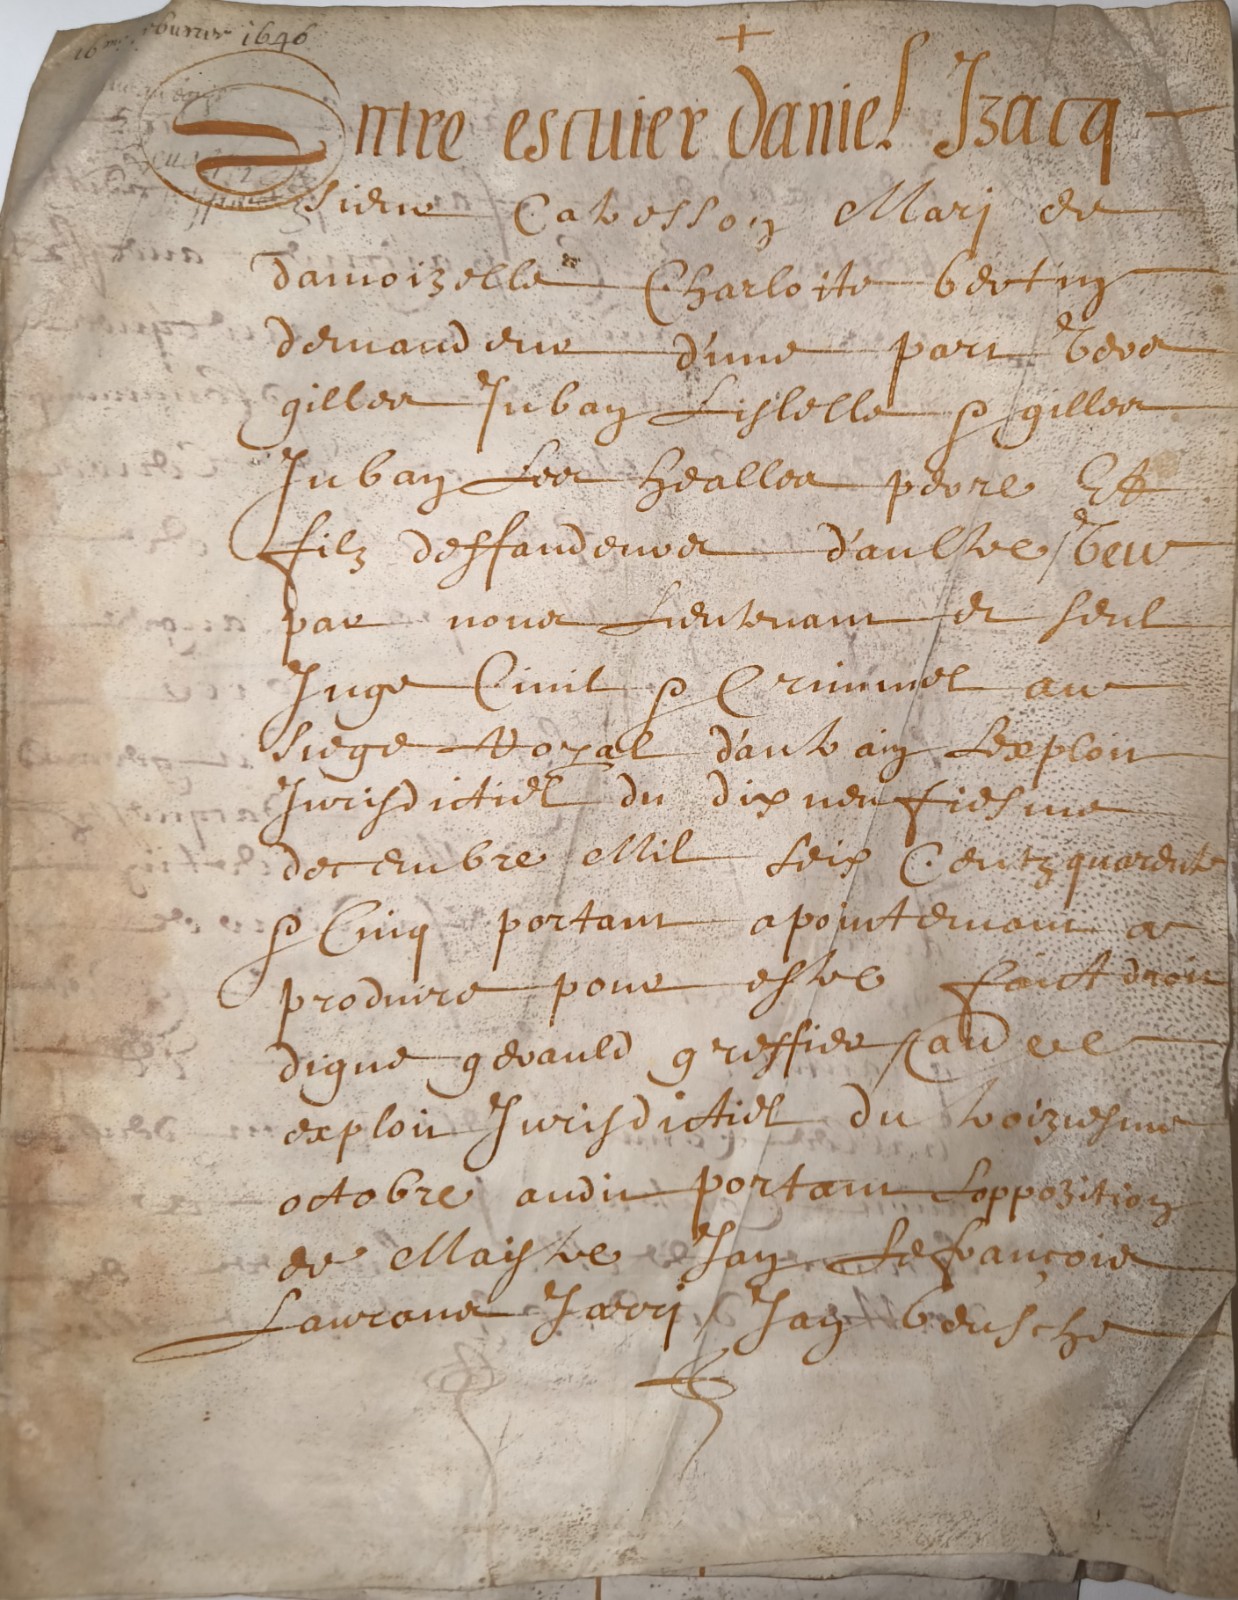 16me febvrier 1646
Entre escuier daniel Izacq
sieur Mary de
damoizelle Charlotte bertin
demandeur d'une part
gilles Juban & gilles
Juban Les pere Et
filz deffandeurs d'aultre / Veu
par nous Lieutenant et seul
Juge Civil & Criminel au
siege Royal d'antrain Lexploit
Jurisdictiel du dixneufiesme
decembre Mil seix Centz quarente
& Cinq portant apointemant a
produire pour estre faict droit
signe gerauld greffier /
exploit Jurisdictiel du troiziesme
octobre audit portant Loppozition
de Maistre Jan Lefrançois
Laurans Jan